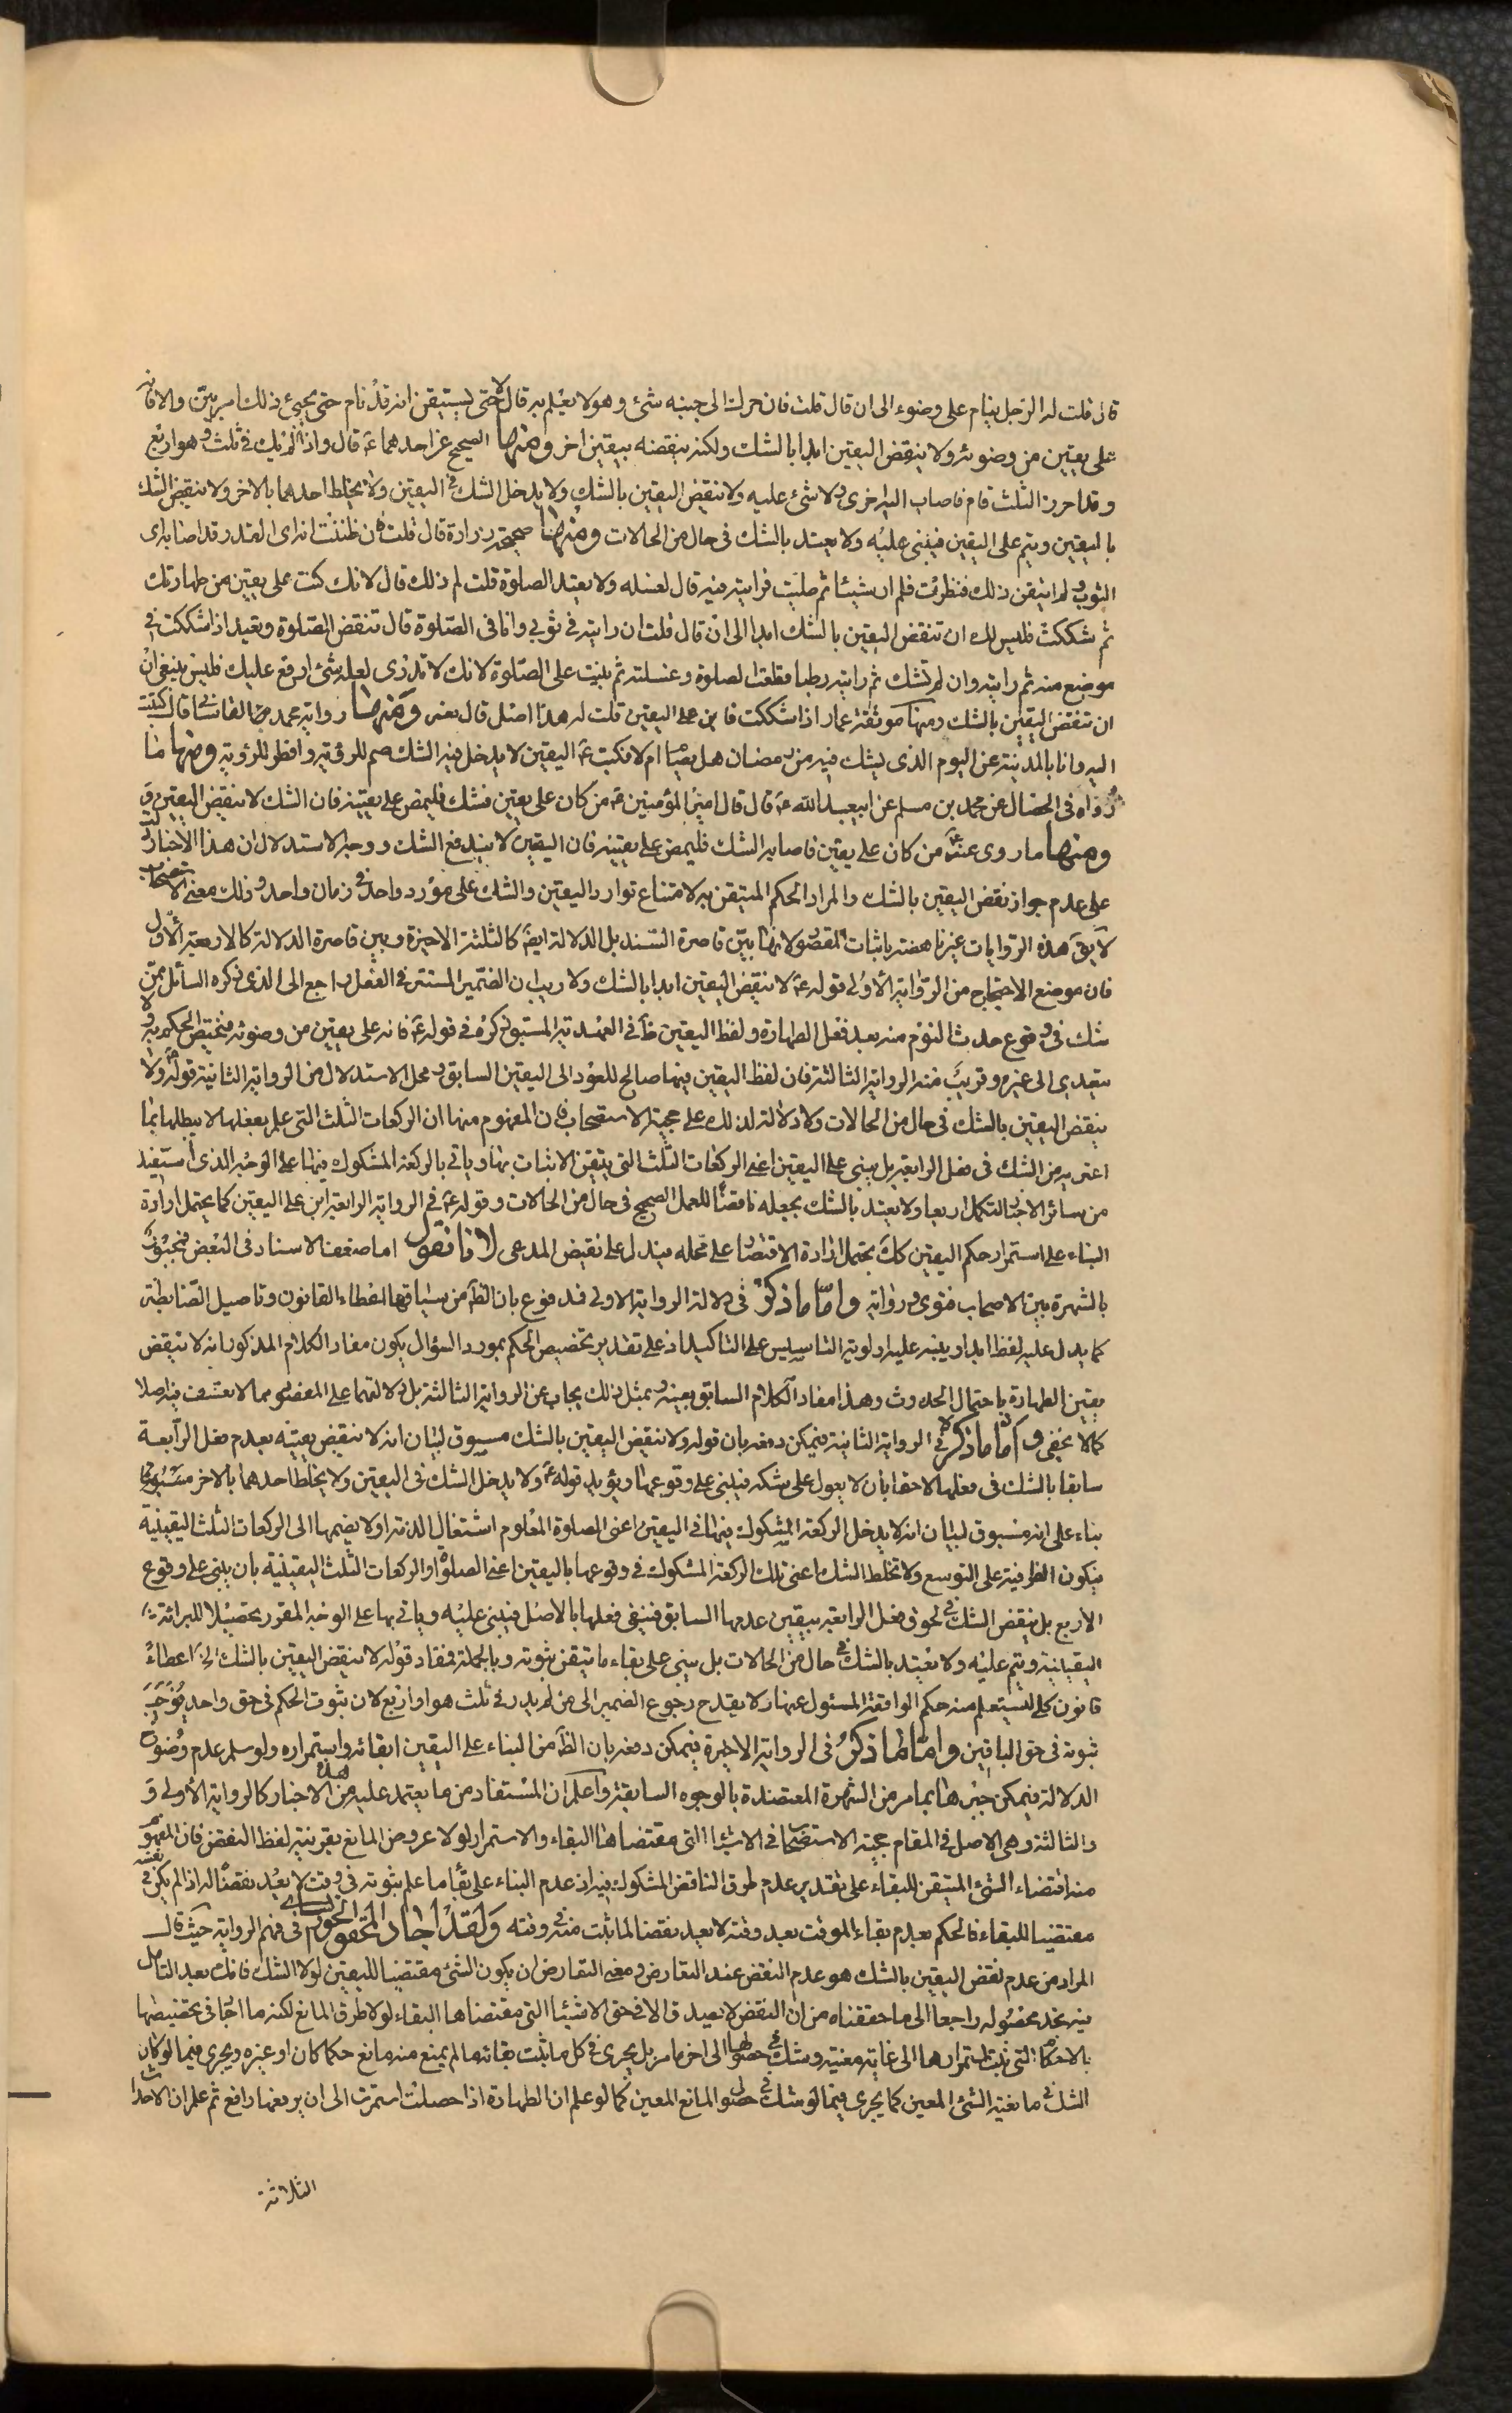 قال قلت له الرجل ينام على وضوء الى ان قال قلت فان حرك الى جنبه شئ وهو لا يعلم به قال لا حتى يستيقن انه قد نام حتى يجيئ ذلك امر بيّن والا فانه
على يقين من وضوئه ولا ينقض اليقين ابدا بالشك ولكنه ينقضه بيقين اخر ومنها الصحيح عن احدهما ع قال واذا لم يدر في ثلث هو او اربع
وقد احرز الثلث قام فاصاب اليها اخرى ولا شئ عليه ولا ينقض اليقين بالشك ولا يدخل الشك في اليقين ولا يخلط احدهما بالاخر ولا ينقض الشك
باليقين ويتم على اليقين فيبنى عليه ولا يعتد بالشك في حال من الحالات ومنها صحيحة زرارة قال قلت فان ظننت انه اى المقدر قد اصابه اى
الثوب ولم اتيقن ذلك فنظرت فلم ار شيئا ثم صليت فرايته فيه قال تغسله ولا تعيد الصلوة قلت لم ذلك قال لانك كنت على يقين من طهارتك
ثم شككت فليس لك ان تنقض اليقين بالشك ابدا الى ان قال قلت ان رايته في ثوبي وانا في الصلوة قال تنقض الصلوة وتعيد اذا شككت في
موضع منه ثم رايته وان لم تشك ثم رايته رطبا قطعت الصلوة وغسلته ثم بنيت على الصلوة لانك لا تدرى لعله شئ اوقع عليك فليس ينبغي ان
ان تنقض اليقين بالشك ومنها موثقة عمار اذا شككت فابن على اليقين قلت له هذا اصل قال نعم ومنها رواية محمد القاساني قال كتبت
اليه وانا بالمدينة عن اليوم الذى يشك فيه من رمضان هل يصام ام لا فكتب ع اليقين لا يدخل فيه الشك صم للرؤية وافطر للرؤية ومنها ما
رواه في الخصال عن محمد بن مسلم عن ابيعبد الله ع قال قال امير المؤمنين ع من كان على يقين فشك فليمض على يقينه فان الشك لا ينقض اليقين
ومنها ما روى عنه ع من كان على يقين فاصابه الشك فليمض على يقينه فان اليقين لا يندفع الشك ووجه الاستدلال ان هذا الاخبار دلت
على عدم جواز نقض اليقين بالشك والمراد الحكم المتيقن به لامتناع توارد اليقين والشك على مورد واحد في زمان واحد وذلك معنى الاستصحاب
لا يق هذه الروايات غير ناهضة باثبات المقصود لانها بين قاصرة السند بل الدلالة ايضا كالثلثة الاخيرة وبين قاصرة الدلالة كالاربعة الاول
فان موضع الاحتجاج من الرواية الاولى قوله ع لا ينقض اليقين ابدا بالشك ولا ريب ان الضمير المستتر في الفعل راجع الى الذى ذكره السائل ممن
شك في وقوع حدث النوم منه بعد فعل الطهارة ولفظ اليقين ظ في العهدية المسبوق ذكره في قوله ع فانه على يقين من وضوئه فيختص الحكم به ولا
يتعدى الى غيره وقريب منه الرواية الثالثة فان لفظ اليقين فيها صالح للعود الى اليقين السابق ومحل الاستدلال من الرواية الثانية قوله ولا
ينقض اليقين بالشك في حال من الحالات ولا دلالة لذلك على حجية الاستصحاب فان المفهوم منها ان الركعات الثلث التي علم بفعلها لا يبطلها بما
اعتريه من الشك في فعل الرابعة بل يبنى على اليقين اعنى الركعات الثلث التي يتيقن الاتيان بها وياتى بالركعة المشكوك فيها على الوجه الذى استفيد
من سائر الاخبار لتكمل اربعا ولا يعتد بالشك بجعله ناقضا للعمل الصحيح في حال من الحالات وقوله ع في الرواية الرابعة ابن على اليقين كما يحتمل ارادة
البناء على استمرار حكم اليقين كك يحتمل ارادة الاقتصار على محله فيدل على نقيض المدعى لانا نقول اما ضعف الاسناد في البعض فمجبور
بالشهرة بين الاصحاب فتوى ورواية واما ما ذكر في دلالة الرواية الاولى فمدفوع بان الظ من سياقها اعطاء القانون وتاصيل الضابطة
كما يدل عليه لفظ ابدا وينبه عليه اولوية التاسيس على التاكيد اذ على تقدير تخصيص الحكم بمورد السؤال يكون مفاد الكلام المذكور انه لا تنقض
يقين الطهارة باحتمال الحدوث وهذا مفاد الكلام السابق بعينه وبمثل ذلك يجاب عن الرواية الثالثة بل دلالتها على المقصود مما لا تعسف فيه اصلا
كما لا يخفى واما ما ذكر في الرواية الثانية فيمكن دفعه بان قوله ولا ينقض اليقين بالشك مسوق لبيان انه لا ينقض يقينه بعدم فعل الرابعة
سابقا بالشك في فعلها لاحقا بان لا يعول على شكه فيبنى على وقوعها ويؤيده قوله ع ولا يدخل الشك في اليقين ولا يخلط احدهما بالاخر
بناء على انه مسوق لبيان انه لا يدخل الركعة المشكوك فيها في اليقين اعنى الصلوة المعلوم اشتغال الذمة او لا يضمها الى الركعات الثلث اليقينية
فيكون الظرفية على التوسع ولا تخلط الشك اعنى تلك الركعة المشكوك في وقوعها باليقين اعنى الصلوة او الركعات الثلث اليقينية بان يبنى على وقوع
الاربع بل ينقض الشك في لحوق فعل الرابعة بيقين عدمها السابق فينفى فعلها بالاصل فيبنى عليه وياتى بها على الوجه المقرر تحصيلا للبرائة
اليقينية ويتم عليه ولا يعتد بالشك في حال من الحالات بل يبنى على بقاء ما تيقن ثبوته وبالجملة فمفاد قوله لا ينقض اليقين بالشك الخ اعطاء
قانون كلى ليستعلم منه حكم الواقعة المسئول عنها ولا يقدح رجوع الضمير الى من لم يدر في ثلث هو او اربع لان ثبوت الحكم في حق واحد يوجب
ثبوته في حق الباقين واما ما ذكر في الرواية الاخيرة فيمكن دفعه بان الظ من البناء على اليقين ابقائه واستمراره ولو سلم عدم وضوح
الدلالة فيمكن جبرها بما مر من الشهرة المعتضدة بالوجوه السابقة واعلم ان المستفاد من ما يعتمد عليه من هذه الاخبار كالرواية الاولى و
والثالثة وهى الاصل في المقام حجية الاستصحاب في الاشياء التي مقتضاها البقاء والاستمرار لولا عروض المانع بقرينة لفظ النقض فان المفهوم
منه اقتضاء الشئ المتيقن للبقاء على تقدير عدم طرق الناقض المشكوك فيه اذ عدم البناء على بقاء ما علم ثبوته في وقت لا يعد نقضا له اذا لم يكن في نفسه
مقتضيا للبقاء فالحكم بعدم بقاء الموقت بعد وقته لا يعد نقضا لما ثبت منه في وقته ولقد اجاد المحقق الخوانساري في فهم الرواية حيث قال
المراد من عدم نقض اليقين بالشك هو عدم النقض عند التعارض ومعنى التعارض ان يكون الشئ مقتضيا لليقين لولا الشك فانك بعد التامل
فيه تجد محصوله راجعا الى ما حققناه من ان النقض لا يصدق الا في حق الاشياء التي مقتضاها البقاء لولا طرق المانع لكنه ما اجاد في تخصيصها
بالاحكام التي ثبت استمرارها الى غاية معينة وشك في حصولها الى اخر ما مر بل يجرى في كل ما ثبت بقائه ما لم يمنع منه مانع حكما كان او غيره ويجرى فيما لو كان
الشك في مانعية الشئ المعين كما يجرى فيما لو شك في حصول المانع المعين كما لو علم ان الطهارة اذا حصلت استمرت الى ان يرفعها رافع ثم علم ان الاحداث
الثلاثة